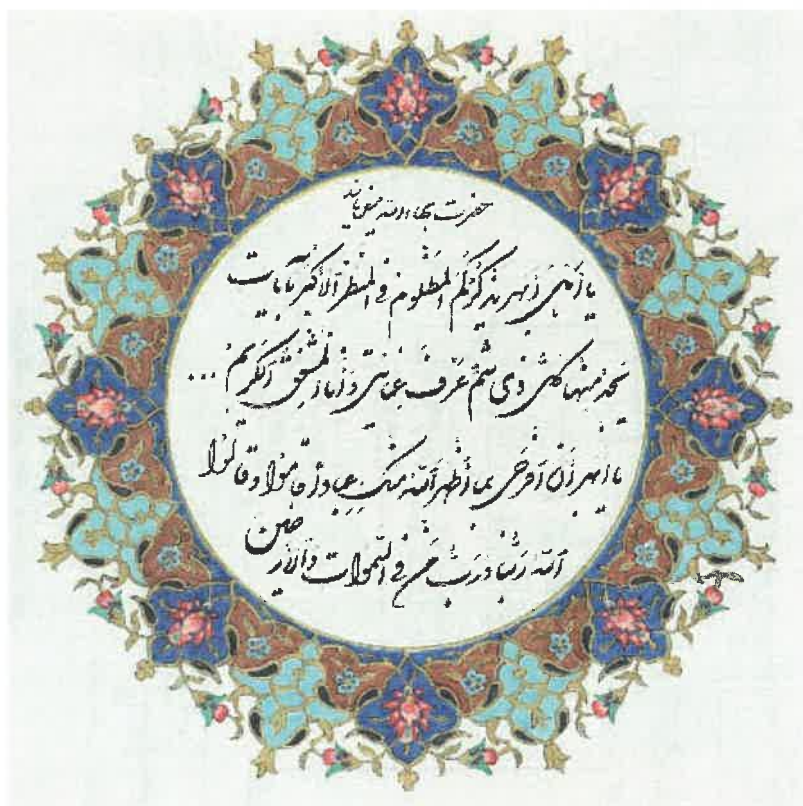 حضرت بهاءالله میفرمایند
یا أهل أبهر یذکرکم المظلوم فی المنظر الأکبر بآیات
یجد منها کل ذی شم عرف عنایتی و أنا المشفق الکریم ...
یا أبهر أن افرحی بما أظهر الله منک عبادا قاموا و قالوا
الله ربنا و رب من فی السموات و الأرضین